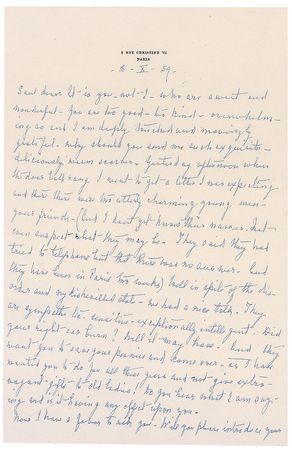 5 RUE CHRISTINE VI
PARIS
8-X-59-
Sam dear- It is you- not-I- who are sweet and
wonderful- You are too good- too kind- overwhelm-
ing so and I am deeply touched and
grateful. Why should you send me such exquisite-
deliciously warm scarves- Yesterday afternoon when
the door bell rang I went to get a letter I was expecting
and there there were two utterly charming young men-
your friends- (but I don't yet know their names. but
can suspect what they may be- They said they had
tried to telephone but that there was no answer- had
they been in Paris two weeks) Well in spite of the dis-
order and my dishevelled state- we had a nice talk. They
are sympathetic- sensitive- exceptionally intelligent. Did
your right ear burn? Well it may have- but they
want you to save your pennies and come over- as I have
wanted you to do for all these years and not give extra-
vagant-gifts- to old ladies! Do you hear what I am say-
ing and is it having any effect upon you-
Now I have a favor to ask you- Will you please introduce your